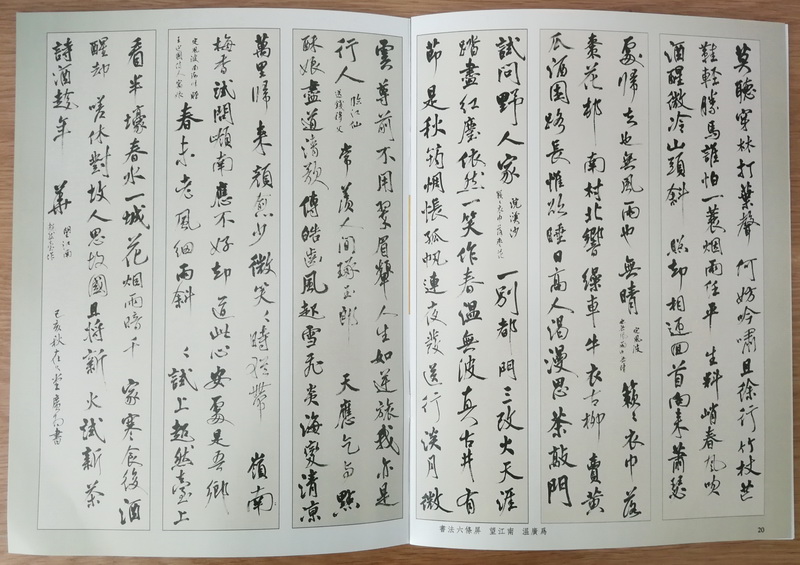 莫聽穿林打葉聲 何妨吟嘯且徐行竹杖芒
鞋輕勝馬誰怕一蓑烟雨任平 生料峭春風吹
酒醒微冷山頭斜 照却相迎回首向來蕭瑟
處歸去也無風雨也無晴 定風波 簌々衣巾落
棗花邨 南村北響繰車牛衣古柳 賣黃
瓜酒困路長惟欲睡日高人渴漫思茶敲門
試問野人家 浣溪沙 一別都門三改火天涯
踏盡紅塵依然一笑作春溫無波真古井有
節是秋筠惆悵孤帆連夜發送行淡月微
雲尊前不用翠眉顰人生如逆旅我亦是
行人 臨江仙 送錢穆父 常羨人間琢玉郎 天應乞與點
酥娘盡道清歌傳皓齒風起雪飛炎海變清涼
萬里歸來顏愈少微笑々時猶帶 嶺南
梅香試問嶺南應不好却道此心安處是吾鄉
定風波 春未老風細雨斜 々試上超然臺上
看半壕春水一城花烟雨暗千 家寒食後酒
醒却 嗟休對故人思故國且將新 火試新茶
詩酒趁年 華 望江南 超然臺作 己亥秋 書
書法六條屏 望江南 溫廣爲
20